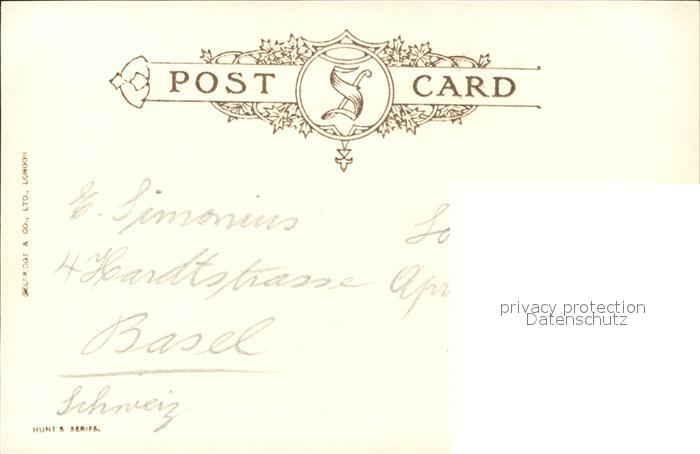 POST CARD
SELFRIDGE & CO., LTD., LONDON
E. Simonius
4 Hardtstrasse
Basel
Schweiz
Apr
HUNT'S SERIES.
privacy protection
Datenschutz